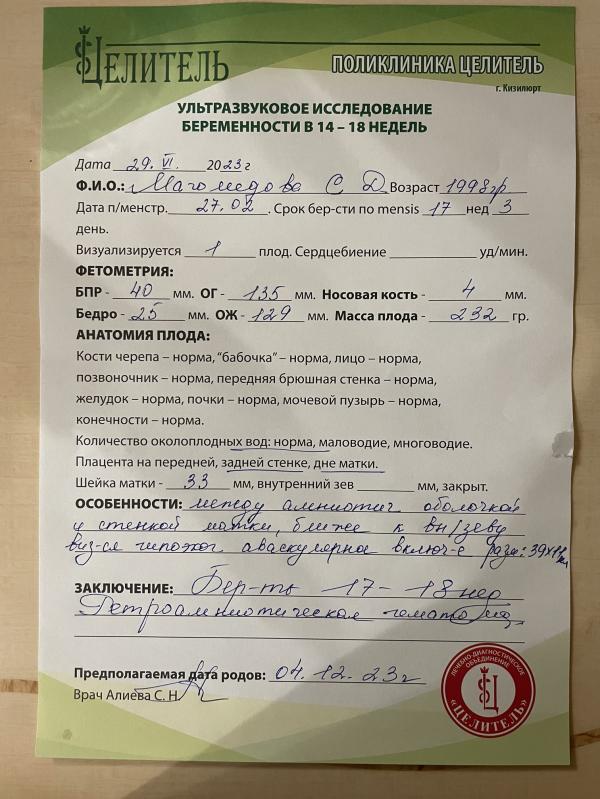 ЦЕЛИТЕЛЬ
ПОЛИКЛИНИКА ЦЕЛИТЕЛЬ
г. Кизилюрт
УЛЬТРАЗВУКОВОЕ ИССЛЕДОВАНИЕ
БЕРЕМЕННОСТИ В 14 – 18 НЕДЕЛЬ
Дата 29. VI. 2023 г
Ф.И.О.: Магомедова С Д Возраст 1998гр
Дата п/менстр. 27.02 . Срок бер-сти по mensis 17 нед 3
день.
Визуализируется 1 плод. Сердцебиение уд/мин.
ФЕТОМЕТРИЯ:
БПР - 40 мм. ОГ - 135 мм. Носовая кость - 4 мм.
Бедро - 25 мм. ОЖ - 129 мм. Масса плода - 232 гр.
АНАТОМИЯ ПЛОДА:
Кости черепа – норма, "бабочка" – норма, лицо – норма,
позвоночник – норма, передняя брюшная стенка – норма,
желудок – норма, почки – норма, мочевой пузырь – норма,
конечности – норма.
Количество околоплодных вод: норма, маловодие, многоводие.
Плацента на передней, задней стенке, дне матки.
Шейка матки - 33 мм, внутренний зев мм, закрыт.
ОСОБЕННОСТИ: между амниотич оболочкой
и стенкой матки, ближе к вн/зеву
виз-ся гипоэхог. аваскулярное включ-е разм: 39х
ЗАКЛЮЧЕНИЕ: Бер-ть 17-18 нед
Ретроамниотическая гематома
Предполагаемая дата родов: 04.12.23г
Врач Алиева С. Н.
ЛЕЧЕБНО-ДИАГНОСТИЧЕСКОЕ
ОБЪЕДИНЕНИЕ
«ЦЕЛИТЕЛЬ»